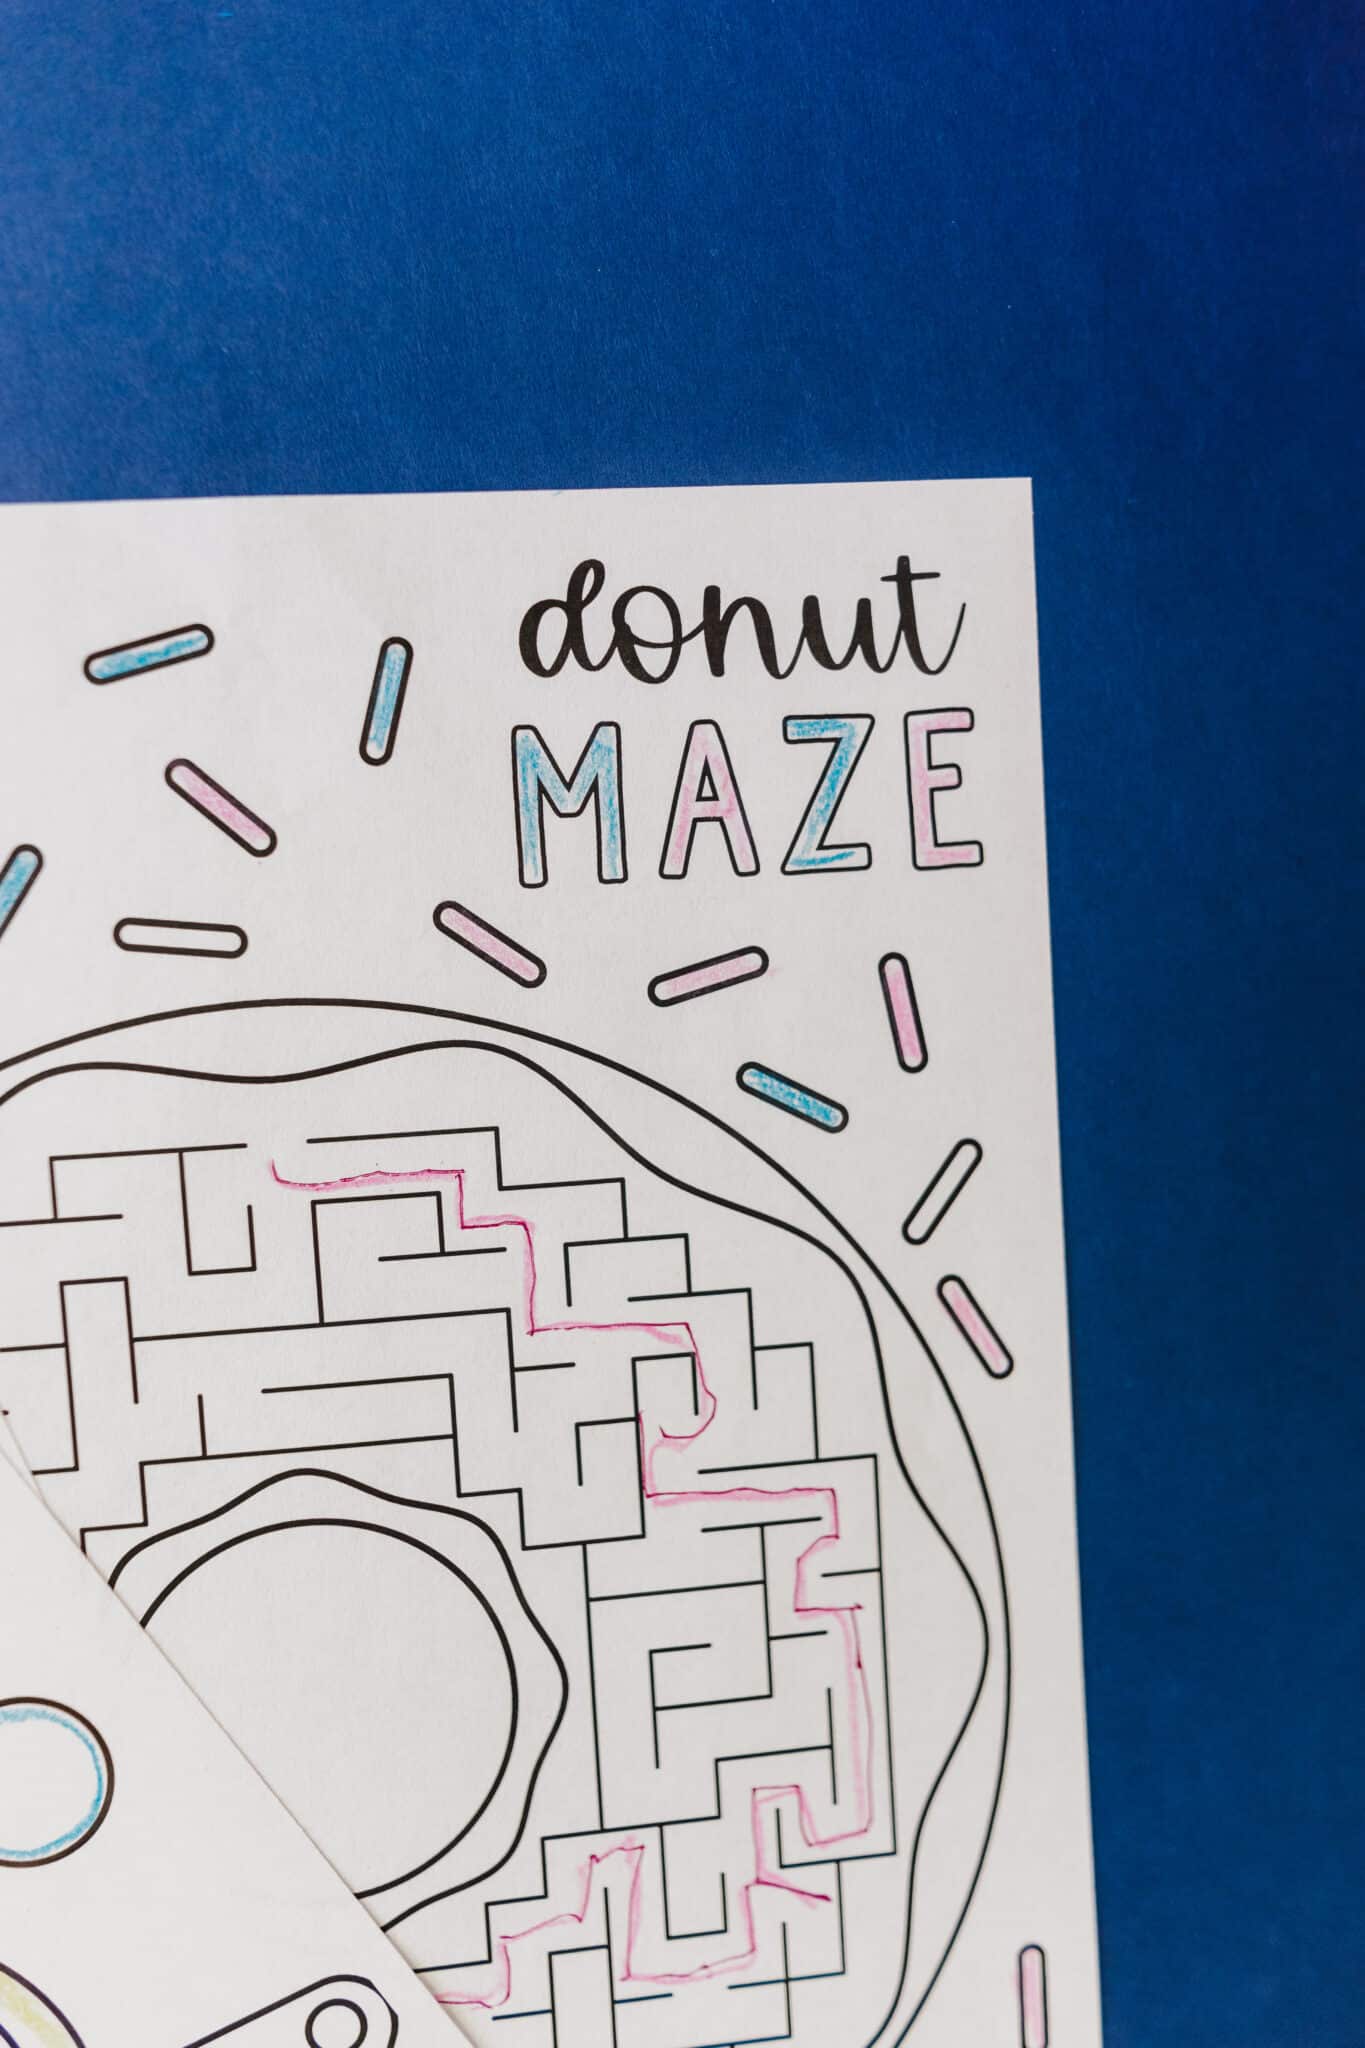 donut
MAZE